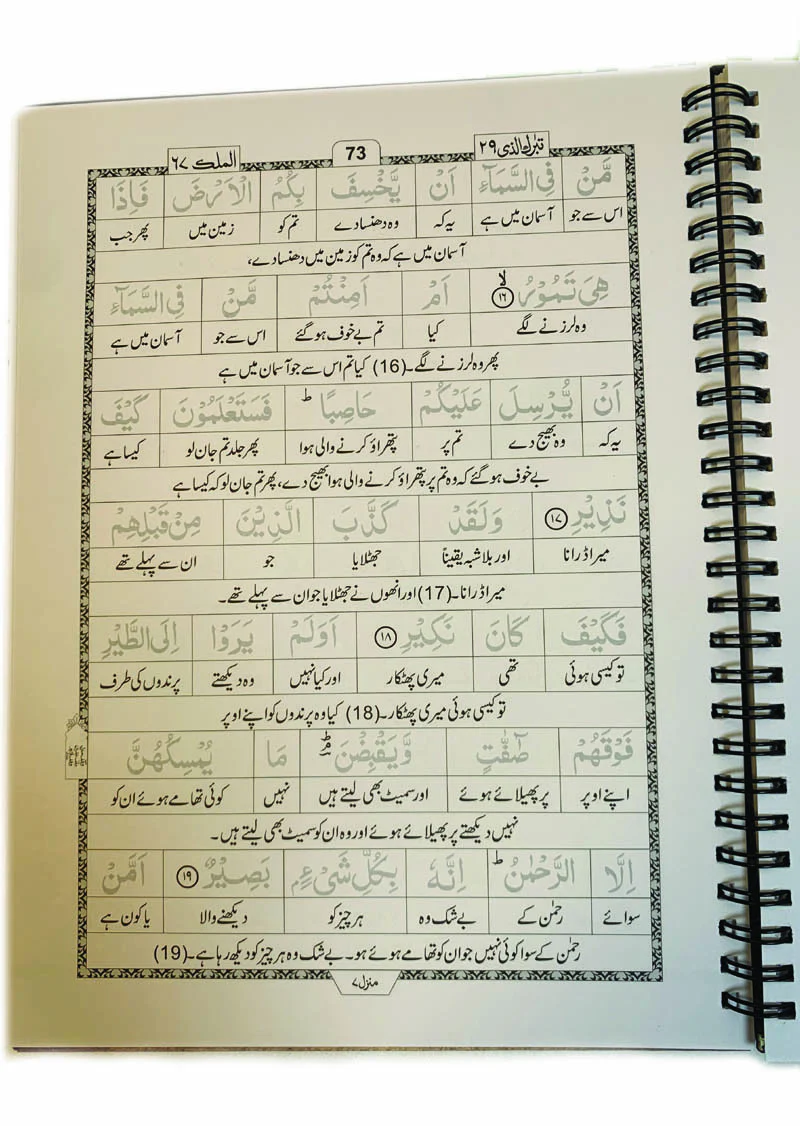 تبٰرك الذى ٢٩ 73 الملك ٦٧
مَّنْ فِى السَّمَآءِ اَنْ يَّخْسِفَ بِكُمُ الْاَرْضَ فَاِذَا
اس سے جو آسمان میں ہے یہ کہ وہ دھنسا دے تم کو زمین میں پھر جب
آسمان میں ہے کہ وہ تم کو زمین میں دھنسا دے،
هِىَ تَمُوْرُ ۙ ﴿١٦﴾ اَمْ اَمِنْتُمْ مَّنْ فِى السَّمَآءِ
وہ لرزنے لگے کیا تم بے خوف ہو گئے اس سے جو آسمان میں ہے
پھر وہ لرزنے لگے۔ (16) کیا تم اس سے جو آسمان میں ہے
اَنْ يُّرْسِلَ عَلَيْكُمْ حَاصِبًا ؕ فَسَتَعْلَمُوْنَ كَيْفَ
یہ کہ وہ بھیج دے تم پر پتھراؤ کرنے والی ہوا پھر جلد تم جان لو کیسا ہے
بے خوف ہو گئے کہ وہ تم پر پتھراؤ کرنے والی ہوا بھیج دے، پھر تم جان لو کہ کیسا ہے
نَذِيْرِ ﴿١٧﴾ وَلَقَدْ كَذَّبَ الَّذِيْنَ مِنْ قَبْلِهِمْ
میرا ڈرانا اور بلا شبہ یقیناً جھٹلایا جو ان سے پہلے تھے
میرا ڈرانا۔ (17) اور انھوں نے جھٹلایا جو ان سے پہلے تھے۔
فَكَيْفَ كَانَ نَكِيْرِ ﴿١٨﴾ اَوَلَمْ يَرَوْا اِلَى الطَّيْرِ
تو کیسی ہوئی تھی میری پھٹکار اور کیا نہیں وہ دیکھتے پرندوں کی طرف
تو کیسی ہوئی میری پھٹکار۔ (18) کیا وہ پرندوں کو اپنے اوپر
فَوْقَهُمْ صٰٓفّٰتٍ وَّيَقْبِضْنَ ؕؔ مَا يُمْسِكُهُنَّ
اپنے اوپر پر پھیلائے ہوئے اور سمیٹ بھی لیتے ہیں نہیں کوئی تھامے ہوئے ان کو
نہیں دیکھتے پر پھیلائے ہوئے اور وہ ان کو سمیٹ بھی لیتے ہیں۔
اِلَّا الرَّحْمٰنُ ؕ اِنَّهٗ بِكُلِّ شَىْءٍۭ بَصِيْرٌ ﴿١٩﴾ اَمَّنْ
سوائے رحمٰن کے بے شک وہ ہر چیز کو دیکھنے والا یا کون ہے
رحمٰن کے سوا کوئی نہیں جو ان کو تھامے ہوئے ہو۔ بے شک وہ ہر چیز کو دیکھ رہا ہے۔ (19)
منزل ٧